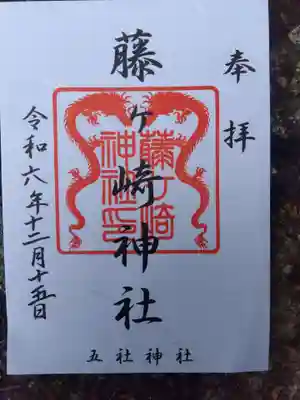 奉拝
藤ヶ崎神社
藤ヶ崎
神社印
令和六年十二月十五日
五社神社